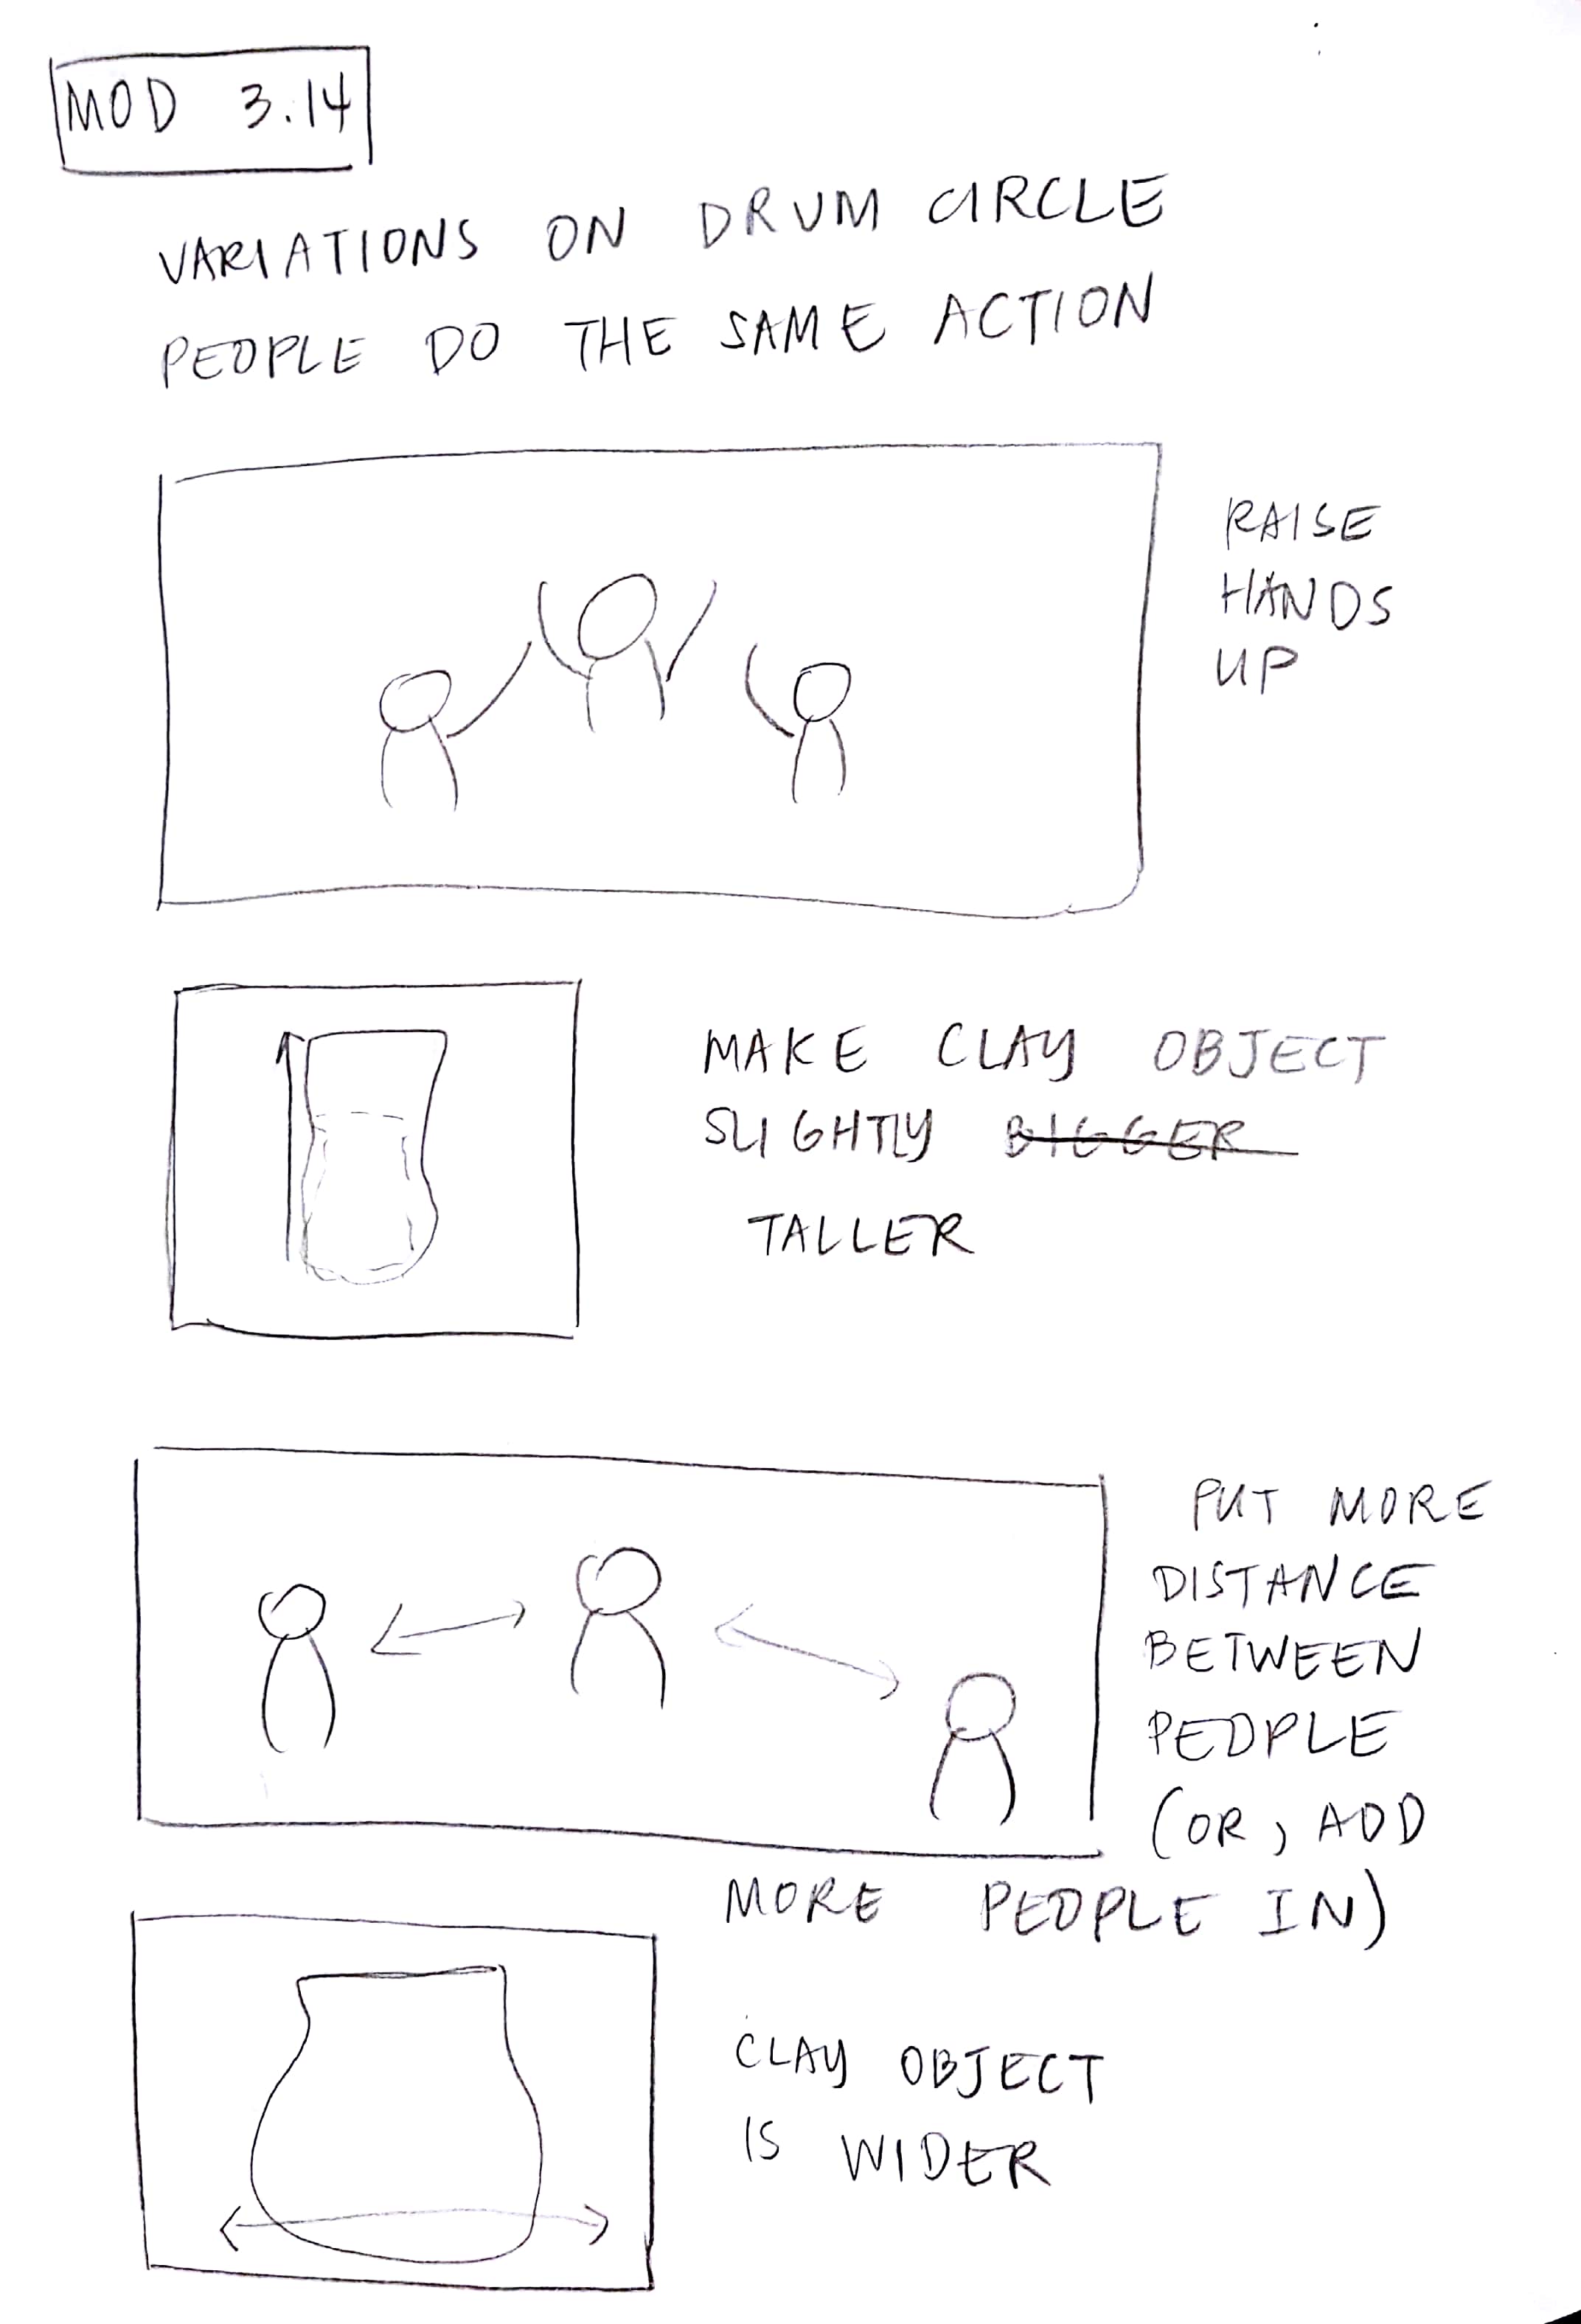 MOD 3.14
VARIATIONS ON DRUM CIRCLE
PEOPLE DO THE SAME ACTION
RAISE
HANDS
UP
MAKE CLAY OBJECT
SLIGHTLY BIGGER
TALLER
PUT MORE
DISTANCE
BETWEEN
PEOPLE
(OR, ADD
MORE PEOPLE IN)
CLAY OBJECT
IS WIDER